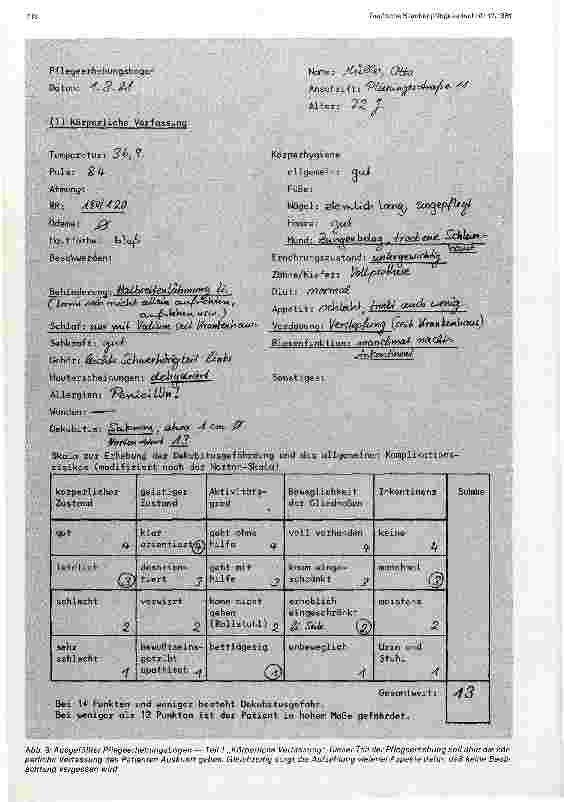 Pflegeerhebungsbogen
Datum: 1.3.81
Name: Müller, Otto
Anschrift: Planungsstraße 11
Alter: 72 J
(1) Körperliche Verfassung
Temperatur: 36,9
Puls: 84
Atmung:
RR: 180/120
Ödeme: Ø
Hautfarbe: blaß
Beschwerden:
Behinderung: Halbseitenlähmung li.
(kann sich nicht allein aufrichten,
aufstehen usw.)
Schlaf: nur mit Valium seit Krankenhaus
Sehkraft: gut
Gehör: leichte Schwerhörigkeit links
Hauterscheinungen: dehydriert
Allergien: Penicillin!
Wunden: —
Dekubitus: Sakrum, etwa 1 cm Ø
Norton-Wert 13
Körperhygiene
allgemein: gut
Füße:
Nägel: ziemlich lang, ungepflegt
Haare: gut
Mund: Zungenbelag, trockene Schleim-
haut
Ernährungszustand: untergewichtig
Zähne/Kiefer: Vollprothese
Diät: normal
Appetit: schlecht, trinkt auch wenig
Verdauung: Verstopfung (seit Krankenhaus)
Blasenfunktion: manchmal nachts
inkontinent
Sonstiges:
Skala zur Erhebung der Dekubitusgefährdung und des allgemeinen Komplikations-
risikos (modifiziert nach der Norton-Skala)
körperlicher Zustand geistiger Zustand Aktivitäts- grad Beweglichkeit der Gliedmaßen Inkontinenz Summe
gut 4 klar orientiert 4 geht ohne Hilfe 4 voll vorhanden 4 keine 4
leidlich 3 desorien- tiert 3 geht mit Hilfe 3 kaum einge- schränkt 3 manchmal 3
schlecht 2 verwirrt 2 kann nicht gehen (Rollstuhl) 2 erheblich eingeschränkt li. Seite 2 meistens 2
sehr schlecht 1 bewußtseins- getrübt apathisch 1 bettlägerig 1 unbeweglich 1 Urin und Stuhl 1
Gesamtwert: 13
Bei 14 Punkten und weniger besteht Dekubitusgefahr.
Bei weniger als 12 Punkten ist der Patient in hohem Maße gefährdet.
Abb. 3: Ausgefüllter Pflegeerhebungsbogen — Teil 1 „Körperliche Verfassung“. Dieser Teil der Pflegeerhebung soll über die kör-
perliche Verfassung des Patienten Auskunft geben. Gleichzeitig sorgt die Aufzählung vielerlei Aspekte dafür, daß keine Beob-
achtung vergessen wird